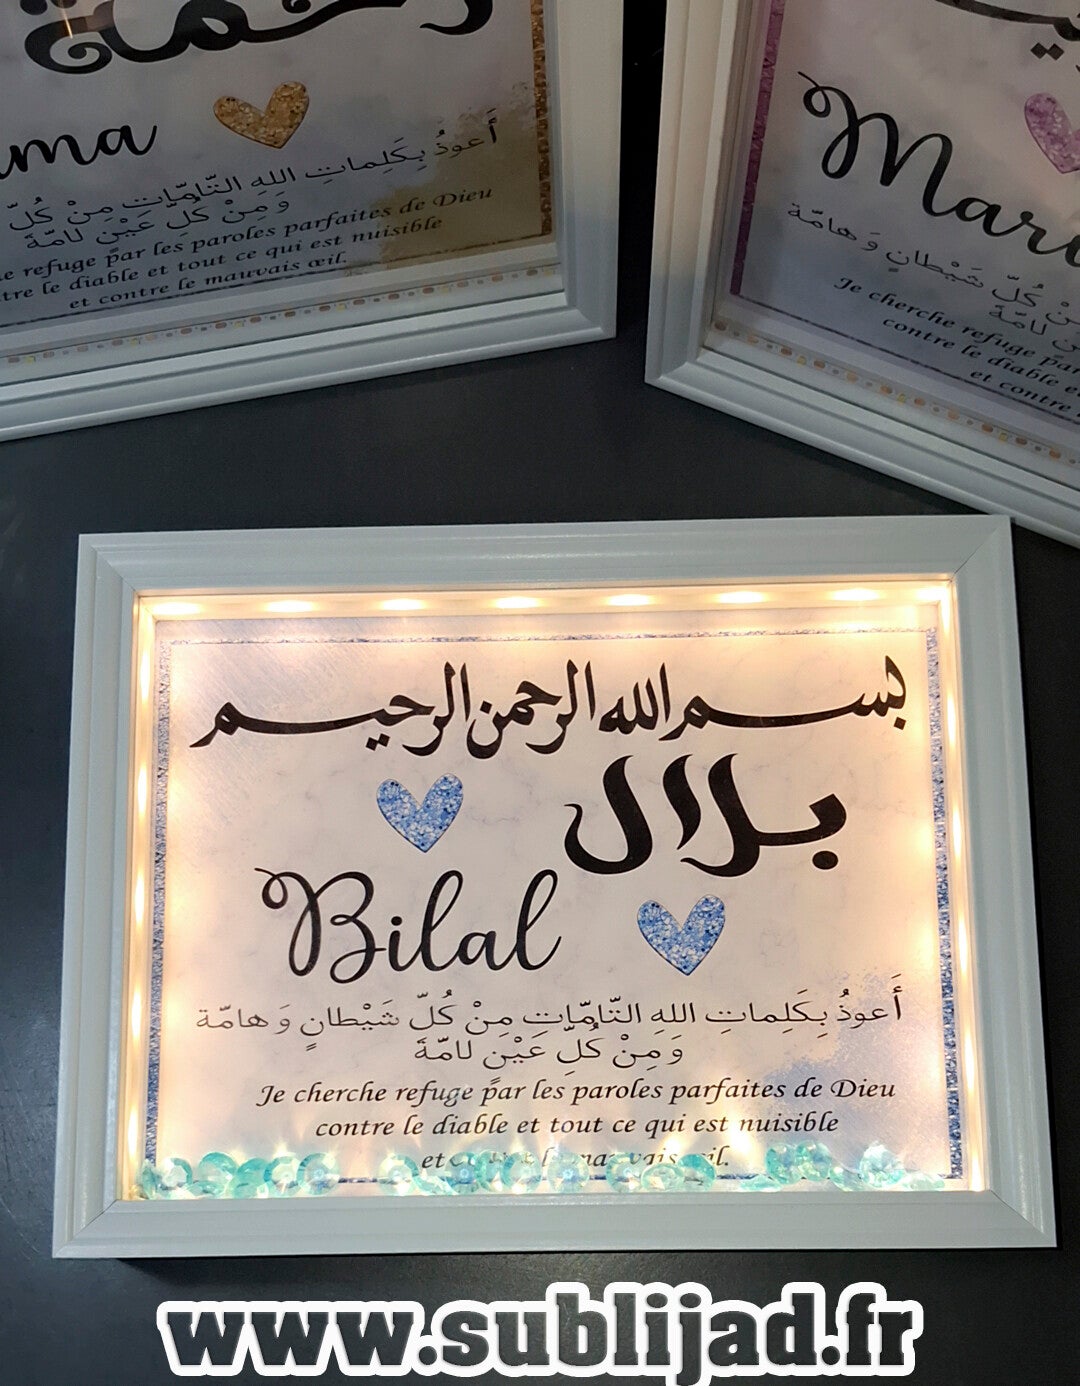 رحمة
أَعوذُ بِكَلِماتِ اللهِ التّامّاتِ مِنْ كُلّ
وَ مِنْ كُلِّ عَيْنٍ لامّةَ
refuge par les paroles parfaites de Dieu
le diable et tout ce qui est nuisible
et contre le mauvais œil.
شَيْطانٍ وَ هامّة
Je cherche refuge par
contre le diable
et contre
بسم الله الرحمن الرحيم
بلال
Bilal
أَعوذُ بِكَلِماتِ اللهِ التّامّاتِ مِنْ كُلّ شَيْطانٍ وَ هامّة
وَ مِنْ كُلِّ عَيْنٍ لامّةَ
Je cherche refuge par les paroles parfaites de Dieu
contre le diable et tout ce qui est nuisible
et contre le mauvais œil.
www.sublijad.fr